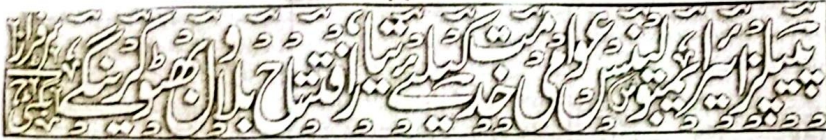 پیپلز ایئر ایمبولینس عوامی خدمت کیلئے تیار، افتتاح بلاول بھٹو کرینگے،